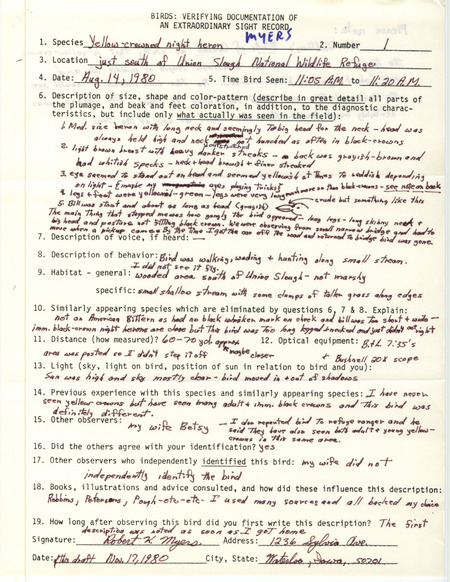 BIRDS: VERIFYING DOCUMENTATION OF
AN EXTRAORDINARY SIGHT RECORD
MYERS
1. Species Yellow-crowned night heron 2. Number 1
3. Location just south of Union Slough National Wildlife Refuge
4. Date: Aug. 14, 1980 5. Time Bird Seen: 11:05 A.M. to 11:20 A.M.
6. Description of size, shape and color-pattern (describe in great detail all parts of
the plumage, and beak and feet coloration, in addition, to the diagnostic charac-
teristics, but include only what actually was seen in the field):
1. Med. size heron with long neck and seemingly too big head for the neck - head was
always held high and neck outstretched not hunched as often in black-crowns
2. light brown breast with heavy darker streaks - back was grayish-brown and
had whitish specks - neck + head brownish + fine streaked
3. eye seemed to stand out on head and seemed yellowish at times to reddish depending
on light - maybe my eyes playing tricks!
4. legs + feet were yellowish-green - legs were very long more so than black-crowns - see note on back
crude but something like this
5. Bill was stout and about as long as head (grayish)
The main thing that stopped me was how gangly the bird appeared - long legs - long skinny neck +
big head and posture not fitting black crown. We were observing from small narrow bridge and had to
move when a pickup came. By the time I got the car off the road and returned to bridge bird was gone.
7. Description of voice, if heard: —
8. Description of behavior: Bird was walking, wading + hunting along small stream.
I did not see it fly.
9. Habitat - general: wooded area south of Union Slough - not marshy
specific: small shallow stream with some clumps of taller grass along edges
10. Similarly appearing species which are eliminated by questions 6, 7 & 8. Explain:
not an American Bittern as had no black whisker mark on cheek and bill was too stout + white -
imm. black-crown night herons are close but this bird was too long legged + necked and yet didn't act right
11. Distance (how measured)? 60-70 yds approx maybe closer 12. Optical equipment: B+L 7x35's
area was posted so I didn't step it off + Bushnell 20X scope
13. Light (sky, light on bird, position of sun in relation to bird and you):
Sun was high and sky mostly clear - bird moved in + out of shadows
14. Previous experience with this species and similarly appearing species: I have never
seen yellow crowns but have seen many adult + imm. black crowns and this bird was
definitely different.
15. Other observers: my wife Betsy - I also reported bird to refuge ranger and he
said they have also seen both adult + young yellow-
crowns in this same area.
16. Did the others agree with your identification? yes
17. Other observers who independently identified this bird: my wife did not
independently identify the bird
18. Books, illustrations and advice consulted, and how did these influence this description:
Robbins, Petersons, Pough-etc-etc- I used many sources and all backed my choice
19. How long after observing this bird did you first write this description? The first
description was noted as soon as I got home
Signature: Robert K. Myers Address: 1236 Sylvia Ave.
Date: this draft Nov. 17, 1980 City, State: Waterloo, Iowa, 50701